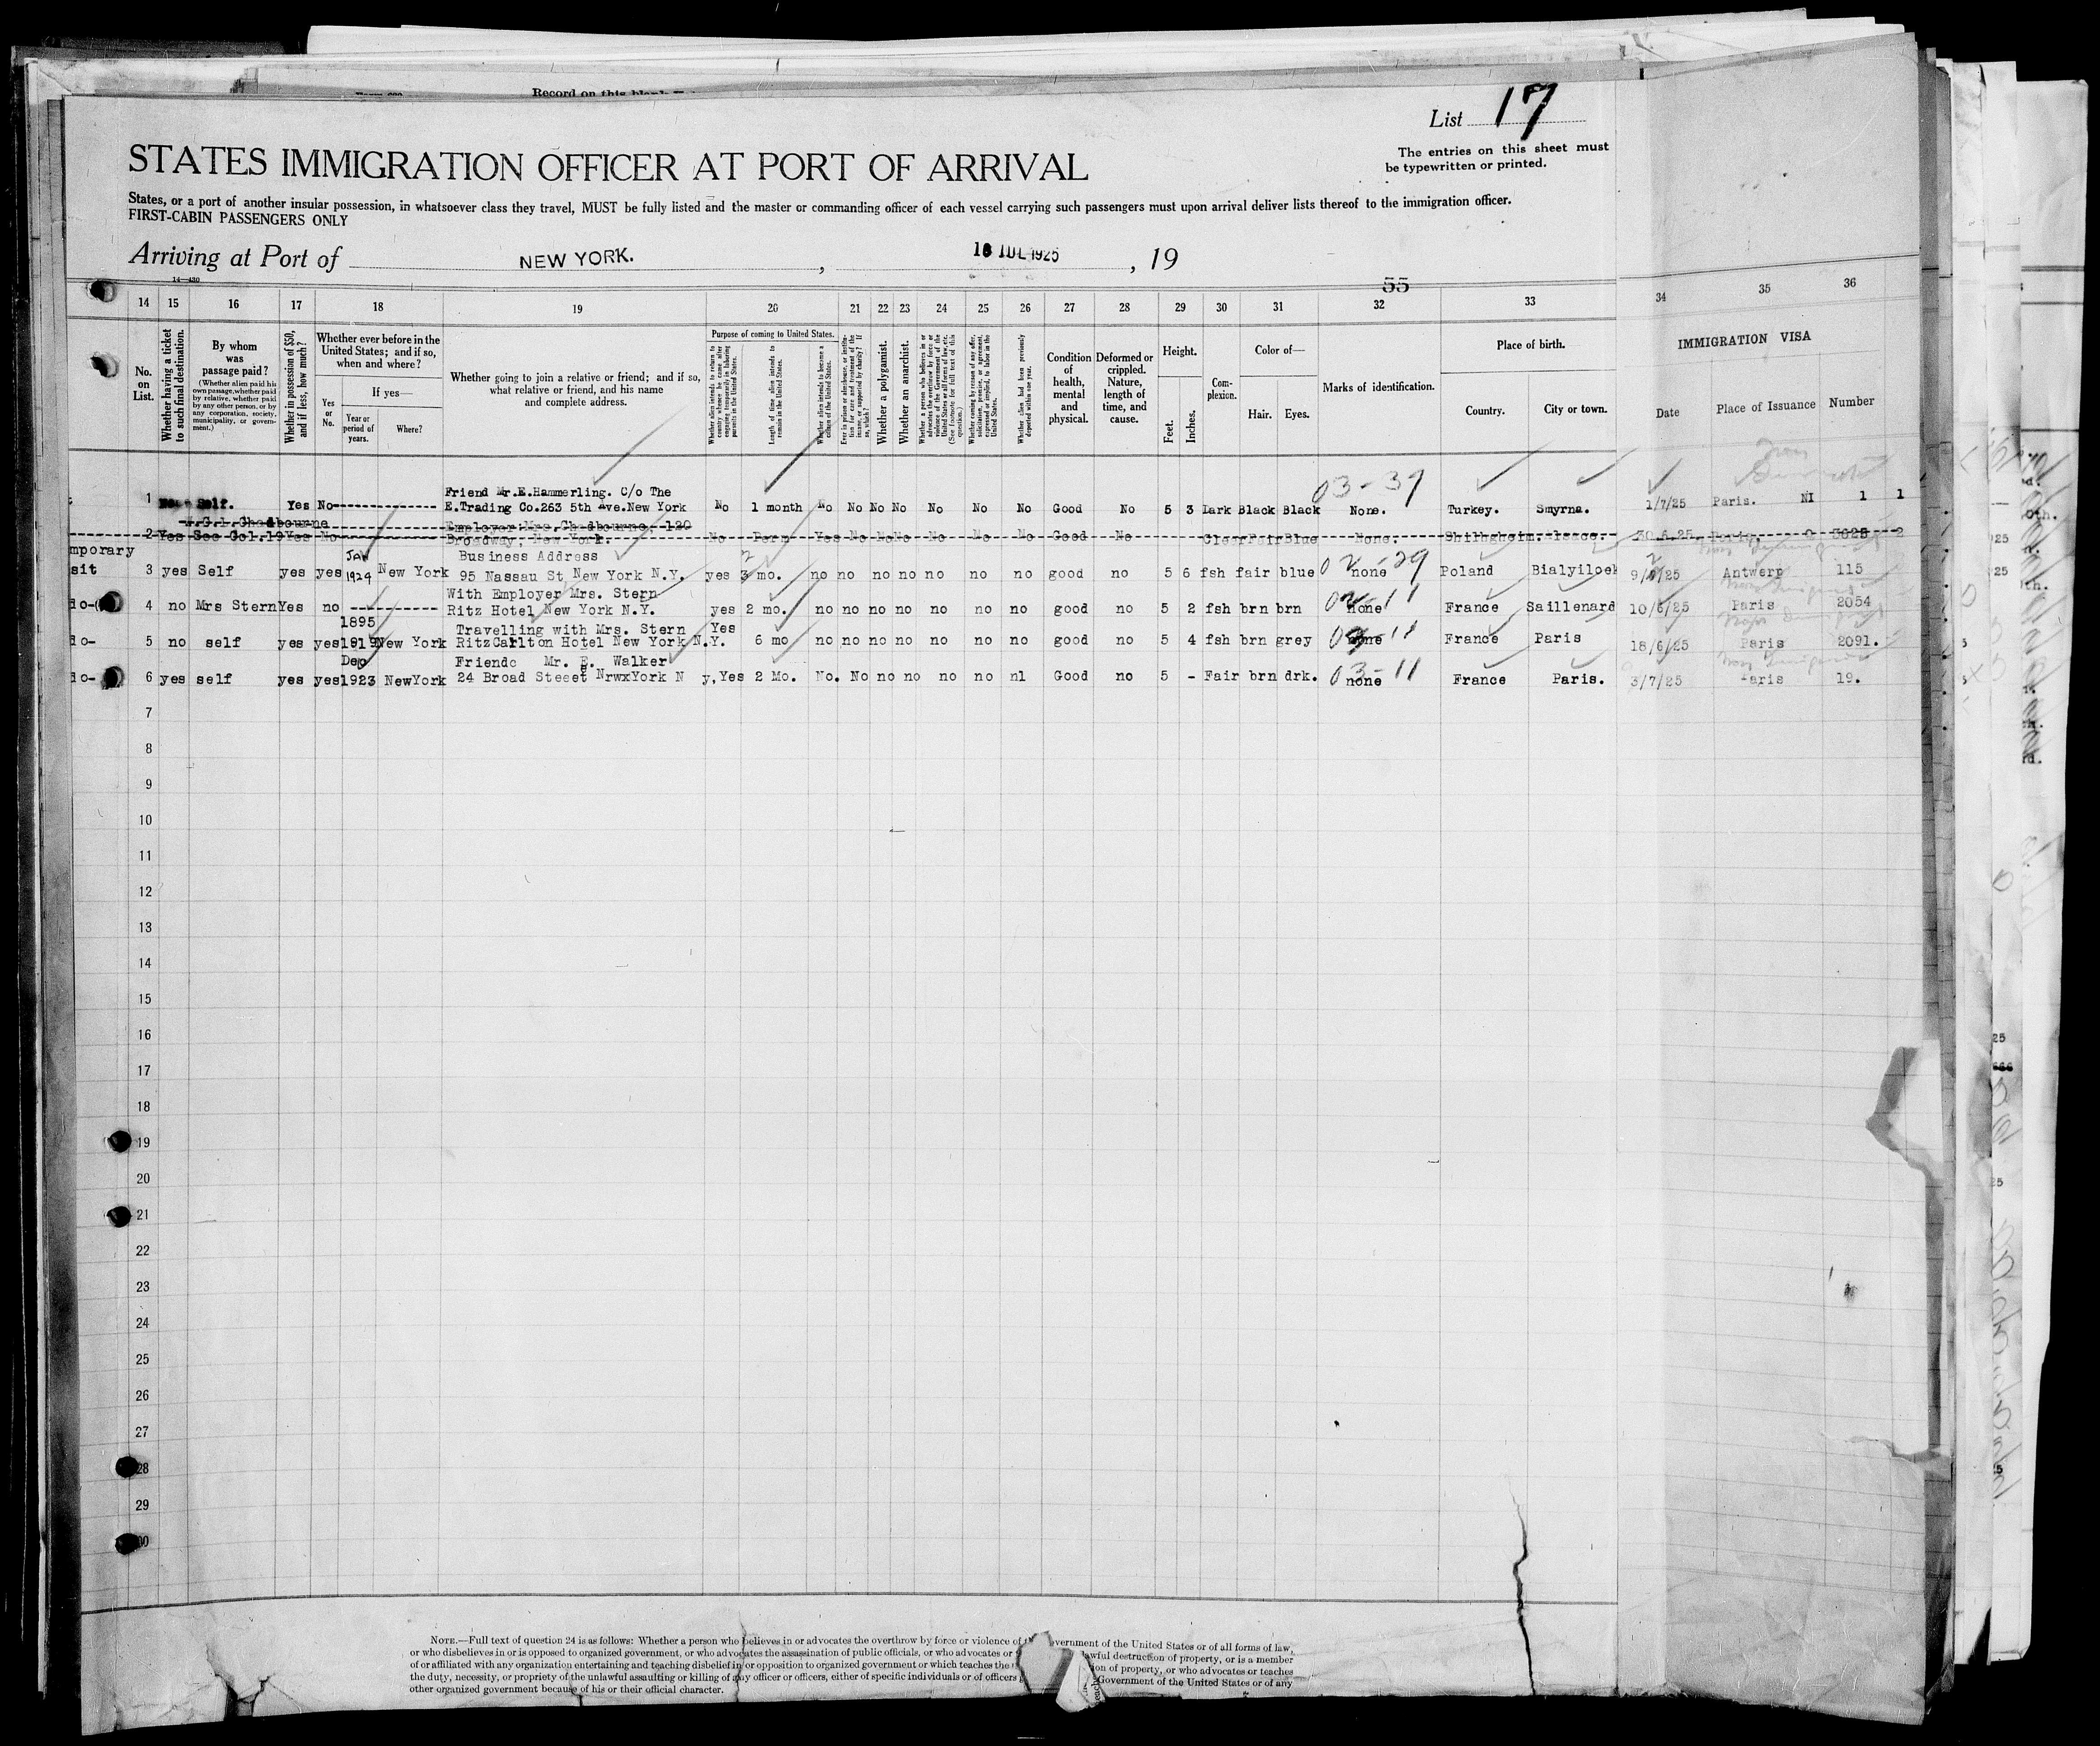 Record on this blank
List 17
The entries on this sheet must
be typewritten or printed.
STATES IMMIGRATION OFFICER AT PORT OF ARRIVAL
States, or a port of another insular possession, in whatsoever class they travel, MUST be fully listed and the master or commanding officer of each vessel carrying such passengers must upon arrival deliver lists thereof to the immigration officer.
FIRST-CABIN PASSENGERS ONLY
Arriving at Port of NEW YORK. , 16 JUL 1925 , 19
14—430
55
14 15 16 17 18 19 20 21 22 23 24 25 26 27 28 29 30 31 32 33 34 35 36
No. on List.
Whether having a ticket to such final destination.
By whom was passage paid?
(Whether alien paid his own passage, whether paid by relative, whether paid by any other person, or by any corporation, society, municipality, or government.)
Whether in possession of $50, and if less, how much?
Whether ever before in the United States; and if so, when and where?
Yes or No.
If yes—
Year or period of years.
Where?
Whether going to join a relative or friend; and if so, what relative or friend, and his name and complete address.
Purpose of coming to United States.
Whether alien intends to return to country whence he came after engaging temporarily in laboring pursuits in the United States.
Length of time alien intends to remain in the United States.
Whether alien intends to become a citizen of the United States.
Ever in prison or almshouse, or institution for care and treatment of the insane, or supported by charity? If so, which?
Whether a polygamist.
Whether an anarchist.
Whether coming by reason of any offer, solicitation, promise, or agreement, expressed or implied, to labor in the United States.
Whether alien had been previously deported within one year.
Condition of health, mental and physical.
Deformed or crippled. Nature, length of time, and cause.
Height.
Feet.
Inches.
Complexion.
Color of—
Hair.
Eyes.
Marks of identification.
Place of birth.
Country.
City or town.
IMMIGRATION VISA
Date
Place of Issuance
Number
03-37
Friend Mr.E.Hammerling. C/o The
1 Self. Yes No----------- E.Trading Co.263 5th Ave.New York No 1 month No No No No No No No Good No 5 3 Dark Black Black None. Turkey. Smyrna. 1/7/25 Paris. NI 1 1
Chadbourne Employer Mrs.Chadbourne, 120
2 Yes See Col.19 Yes No Broadway, New York. No Perm Yes No No No No No No Good No Clear Fair Blue None. 30.6.25 Paris. 3025 2
mporary JAN Business Address 2 2
sit 3 yes Self yes yes 1924 New York 95 Nassau St New York N.Y. yes 3 mo. no no no no no no no good no 5 6 fsh fair blue 02 none 29 Poland 9/ /25 Antwerp 115
With Employer Mrs. Stern
do- 4 no Mrs Stern Yes no ----------- Ritz Hotel New York N.Y. yes 2 mo. no no no no no no no good no 5 2 fsh brn brn none France Saillenard 10/6/25 Paris 2054
1895 Travelling with Mrs. Stern Yes
do- 5 no self yes yes 1919 New York RitzCarlton Hotel New York N.Y. 6 mo no no no no no no no good no 5 4 fsh brn grey none France Paris 18/6/25 Paris 2091.
Dec Friendc Mr. E. Walker
do- 6 yes self yes yes 1923 NewYork 24 Broad Steeet NrwxYork N y, Yes 2 Mo. No. No no no no no nl Good no 5 - Fair brn drk. 03- none 11 France Paris. 3/7/25 Paris 19.
7
8
9
10
11
12
13
14
15
16
17
18
19
20
21
22
23
24
25
26
27
28
29
30
NOTE.—Full text of question 24 is as follows: Whether a person who believes in or advocates the overthrow by force or violence of vernment of the United States or of all forms of law,
or who disbelieves in or is opposed to organized government, or who advocates the assassination of public officials, or who advocates or wful destruction of property, or is a member
of or affiliated with any organization entertaining and teaching disbelief in or opposition to organized government or which teaches the ion of property, or who advocates or teaches
the duty, necessity, or propriety of the unlawful assaulting or killing of any officer or officers, either of specific individuals or of officers Government of the United States or of any
other organized government because of his or their official character.